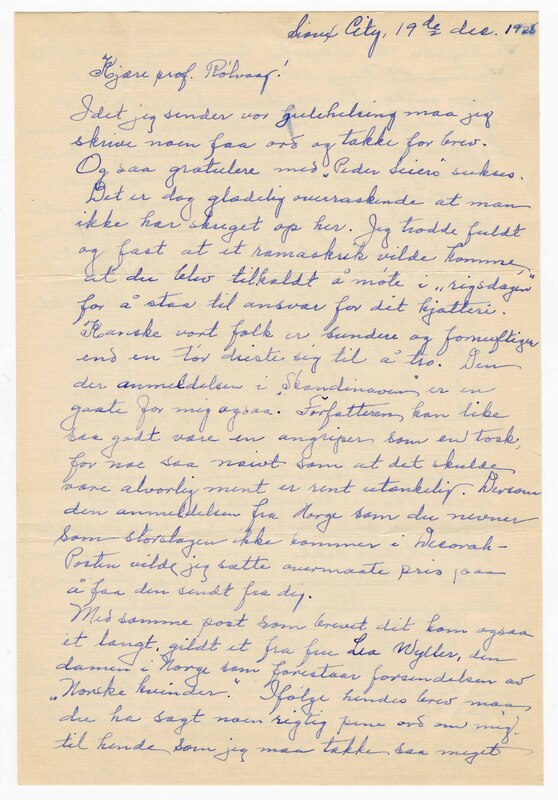 Sioux City, 19de dec. 1928
Kjære prof. Rölvaag!
Idet jeg sender vor julehelsing maa jeg
skrive noen faa ord og takke for brev.
Og saa gratulere med "Peder Seiers" sukses.
Det er dog glædelig overraskende at man
ikke har skreget op her. Jeg trodde fuldt
og fast at et ramaskrik vilde komme,
at du blev tilkaldt å møte i "rigsdagen"
for å staa til ansvar for dit kjætteri.
Kanske vort folk er sundere og fornuftiger
end en tör driste sig til å tro. Den
der anmeldelsen i "Skandinaven" er en
gaate for mig ogsaa. Forfatteren kan like
saa godt være en angriper som en tosk,
for noe saa naivt som at det skulde
være alvorlig ment er rent utænkelig. Dersom
den anmeldelsen fra Norge som du nevner
som storslagen ikke kommer i Decorah-
Posten vilde jeg sætte overmaate pris paa
å faa den sendt fra dig.
Med samme post som brevet dit kom ogsaa
et langt, gildt et fra fru Lea Wyller, den
damen i Norge som forestaar forsendelsen av
"Norske kvinder". Ifølge hendes brev maa
du ha sagt noen rigtig pene ord om mig
til hende som jeg maa takke saa meget